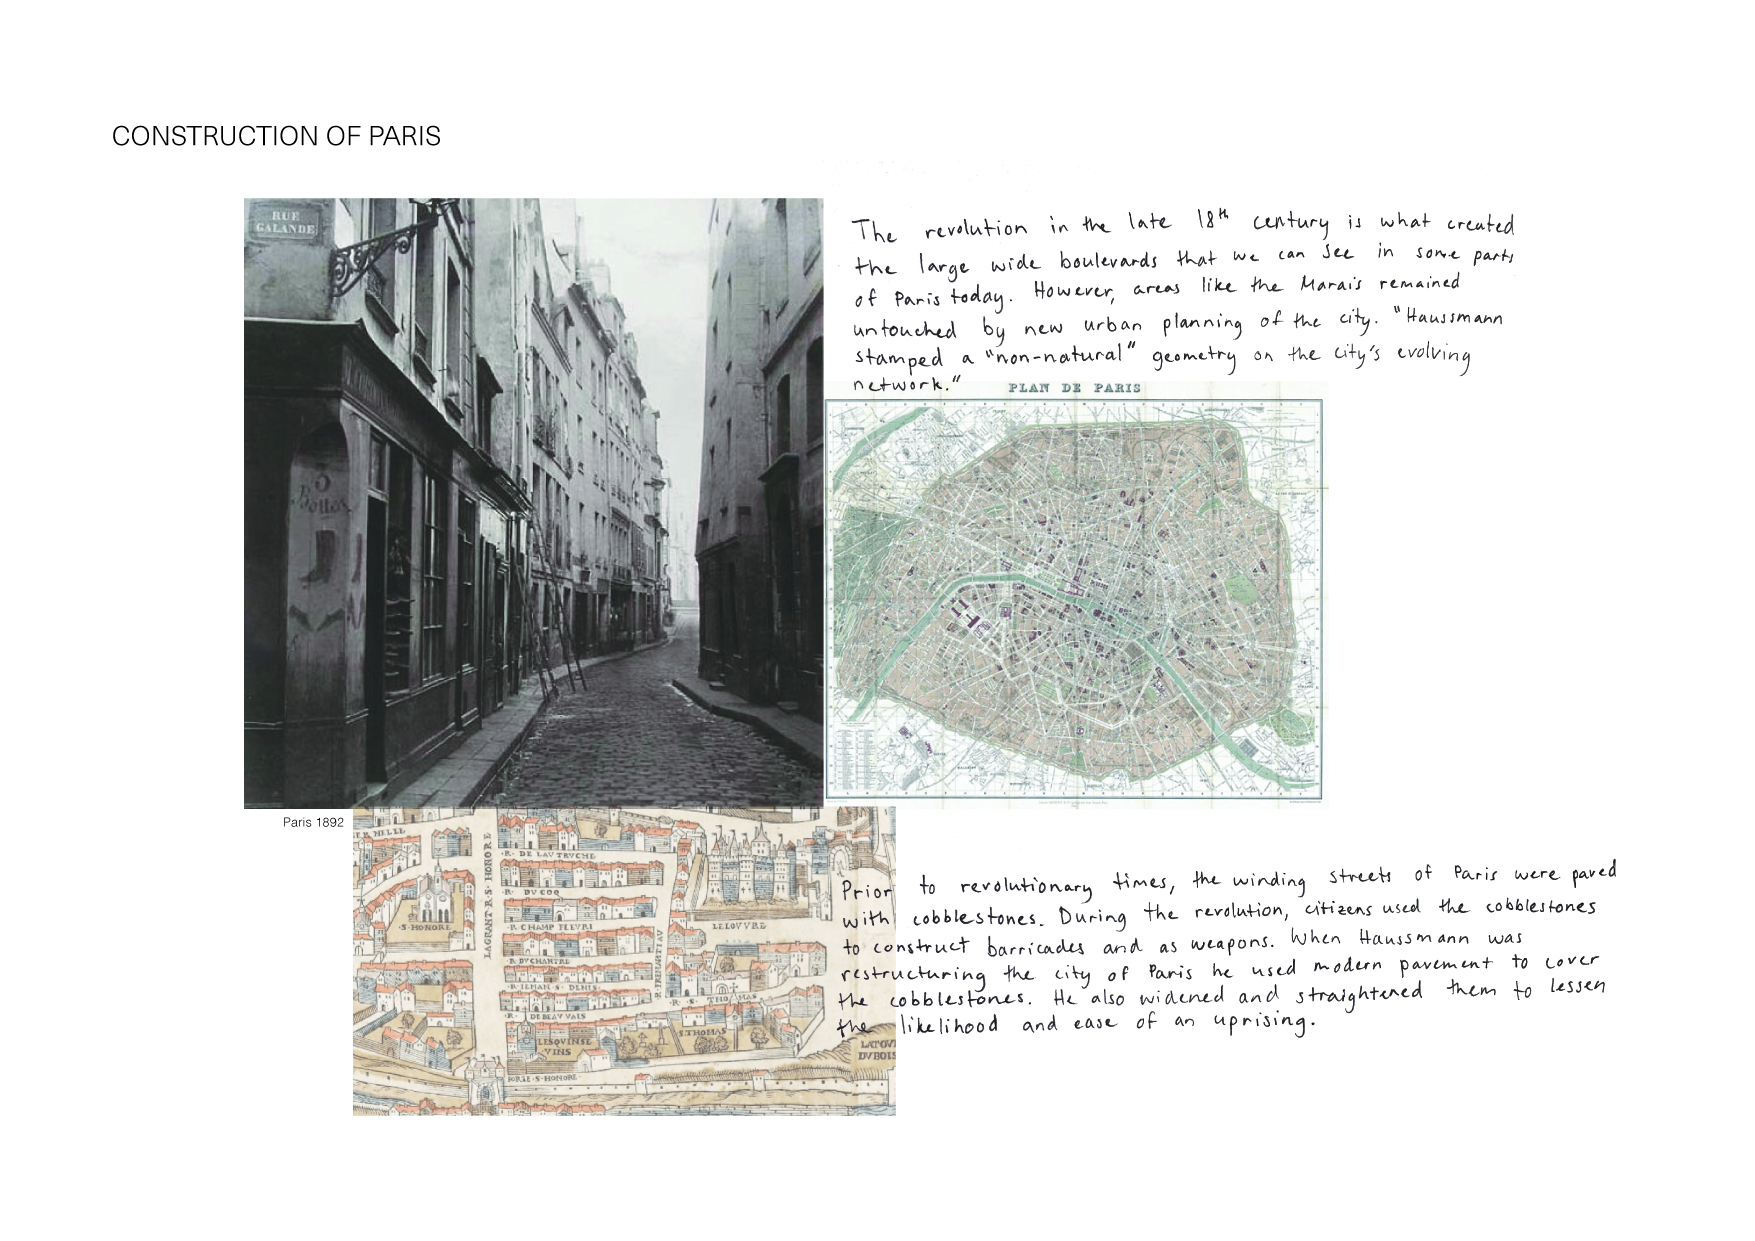 CONSTRUCTION OF PARIS
RUE
GALANDE
The revolution in the late 18th century is what created
the large wide boulevards that we can see in some parts
of Paris today. However, areas like the Marais remained
untouched by new urban planning of the city. "Haussmann
stamped a "non-natural" geometry on the city's evolving
network."
PLAN DE PARIS
Paris 1892
LAGRANT R·S·HONORE
·R· DE LAVTRVCHE
·R· DVCOQ
·R·CHAMP FLEVRI
·S·HONORE·
LELOVVRE
R·DVCHANTRE
·R·IEHAN·S·DENIS·
·R·S·THOMAS
·R· DEBEAVVAIS
S·THOMAS
LESQVINSE
·VINS·
PORTE·S·HONORE·
LATOV
DVBOIS
Prior to revolutionary times, the winding streets of Paris were paved
with cobblestones. During the revolution, citizens used the cobblestones
to construct barricades and as weapons. When Haussmann was
restructuring the city of Paris he used modern pavement to cover
the cobblestones. He also widened and straightened them to lessen
the likelihood and ease of an uprising.